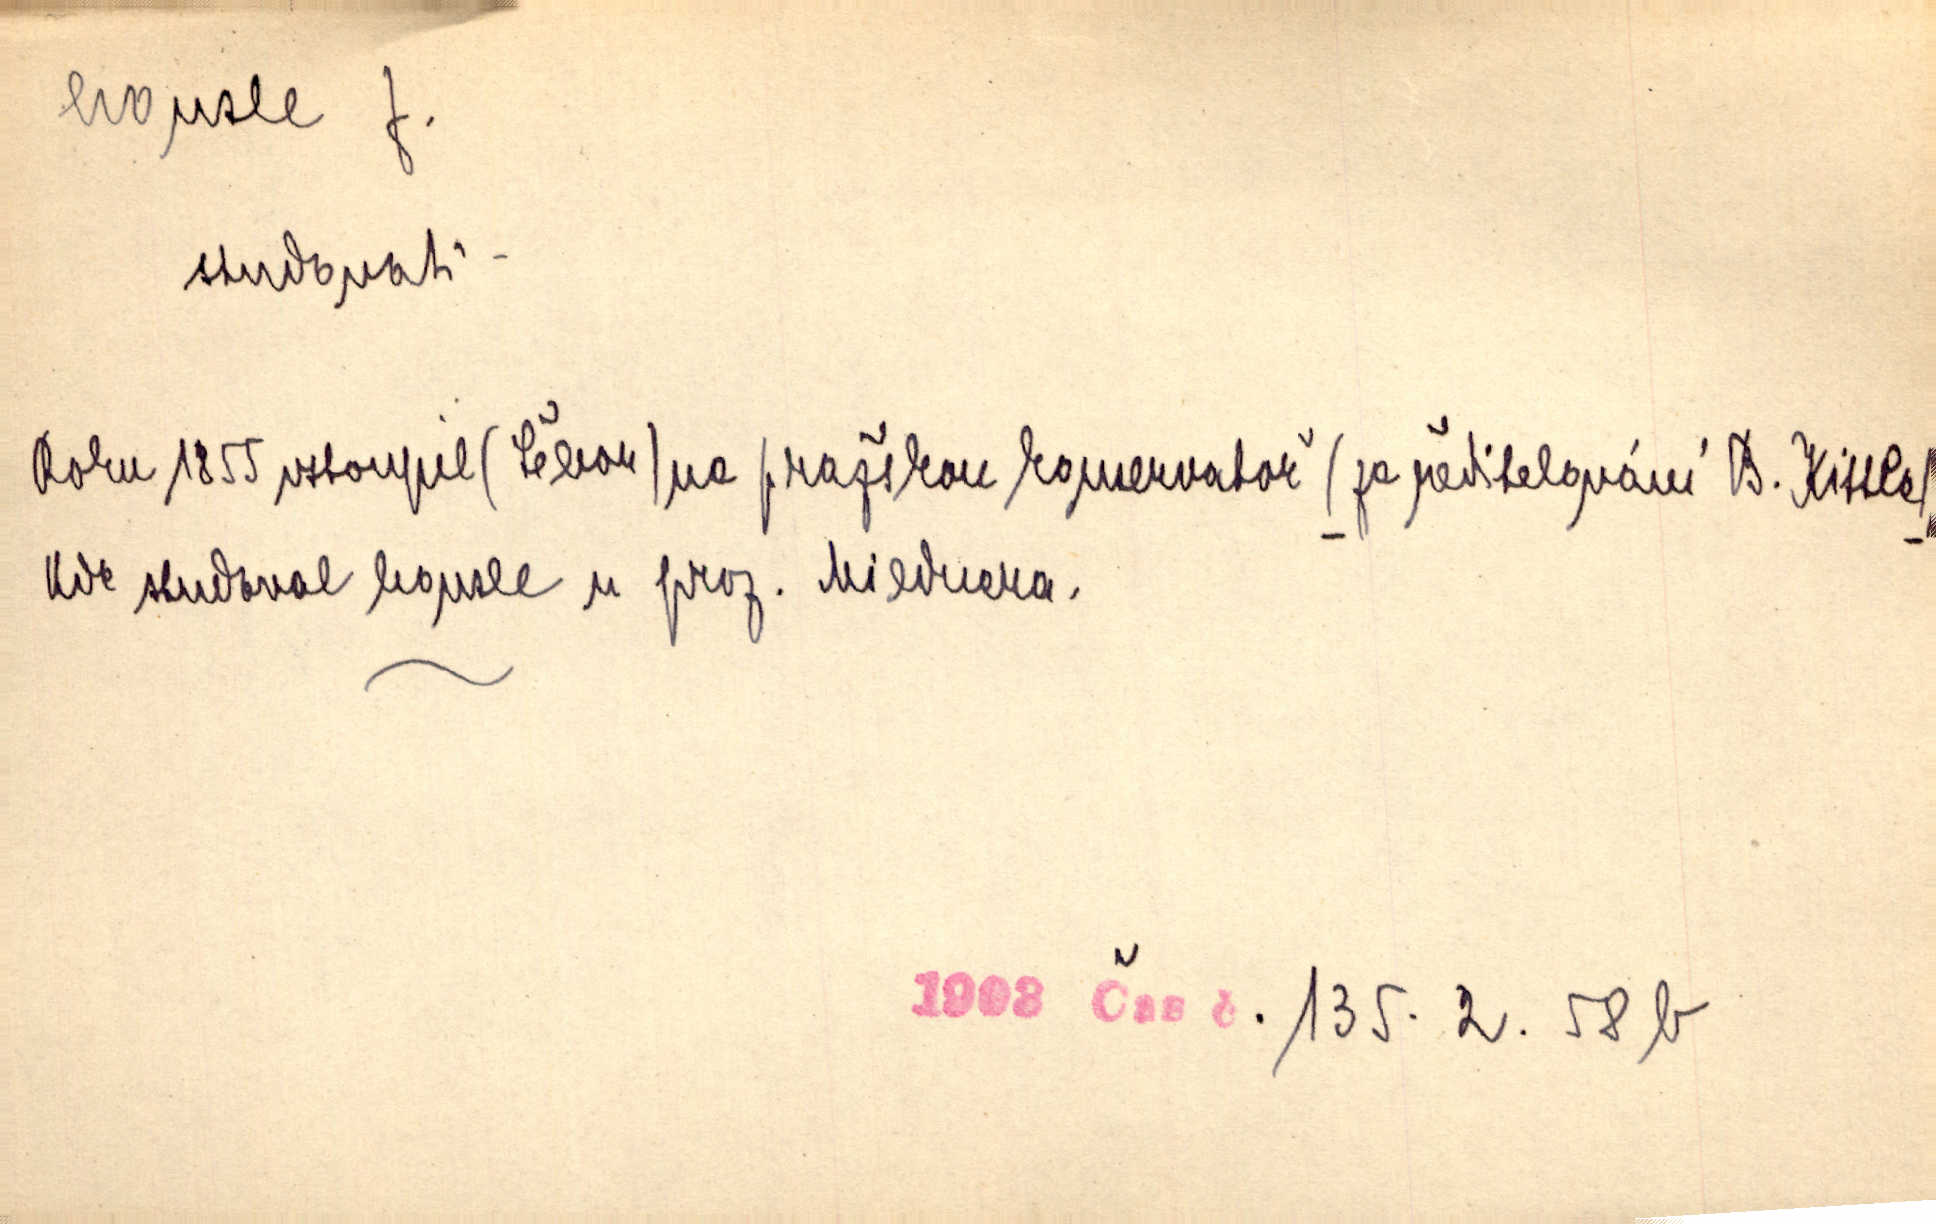 housle f.
studovati -
Roku 1855 vstoupil (Ševčík) na pražskou konservatoř (za ředitelování B. Kittla)
kde studoval housle u prof. Mildnera.
1908 Čas č. 135. 2. 58 b